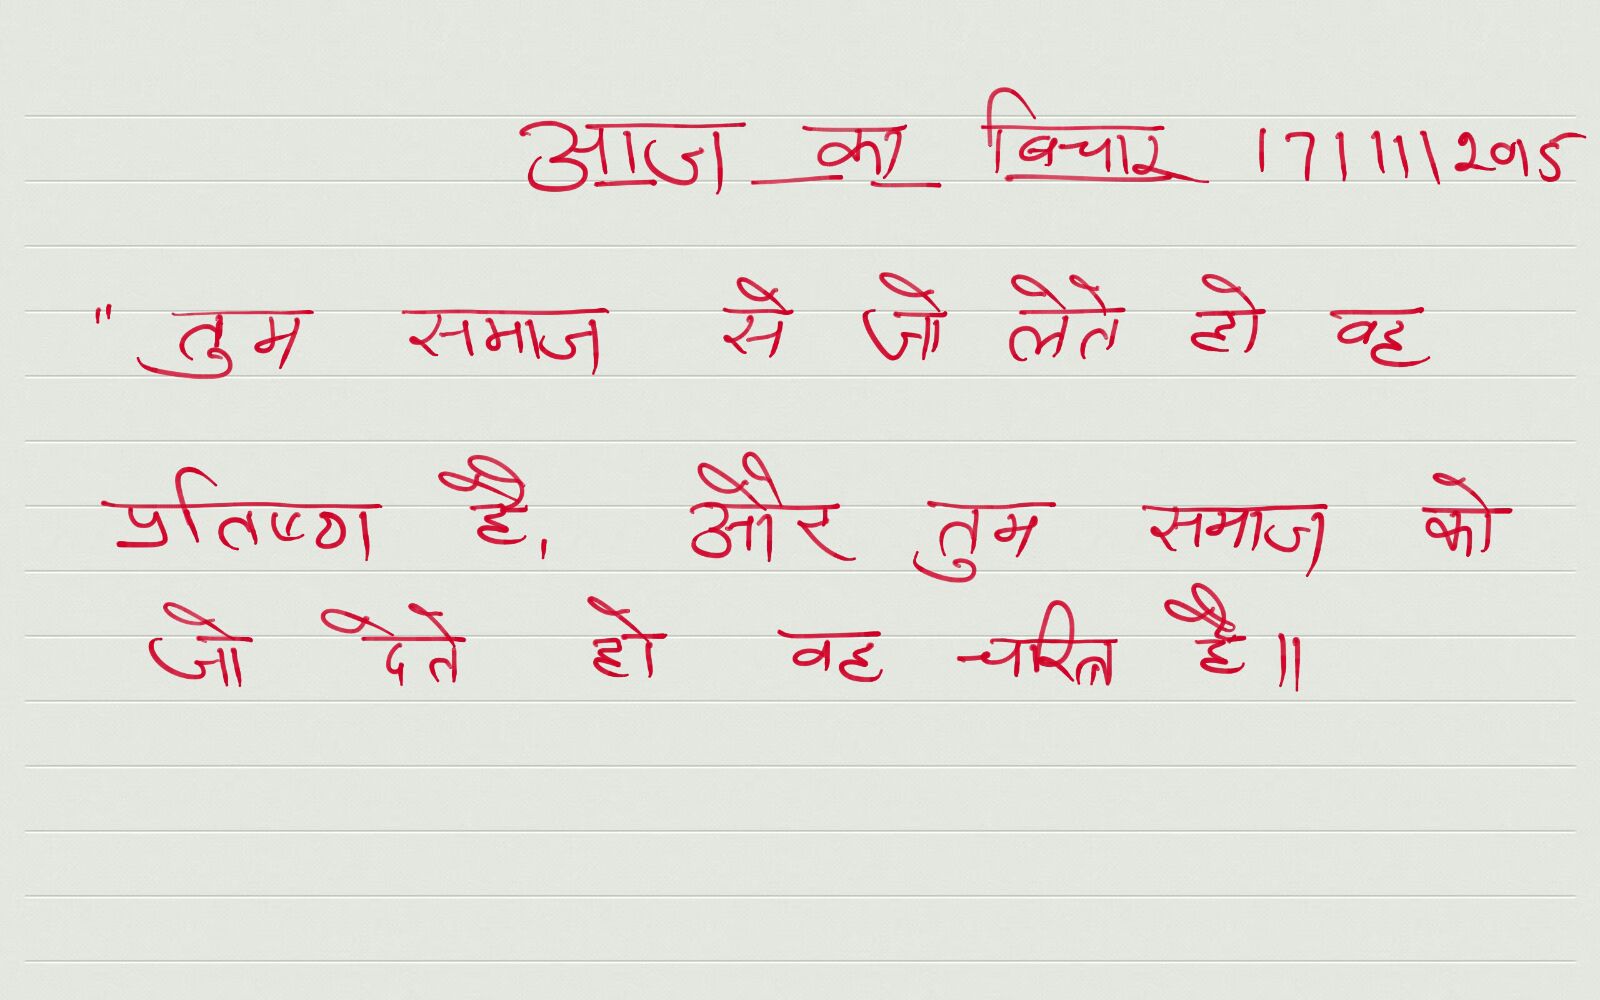 आज का बिचार 17/11/2015
" तुम समाज से जो लेते हो वह
प्रतिष्ठा है, और तुम समाज को
जो देते हो वह चरित्र है॥